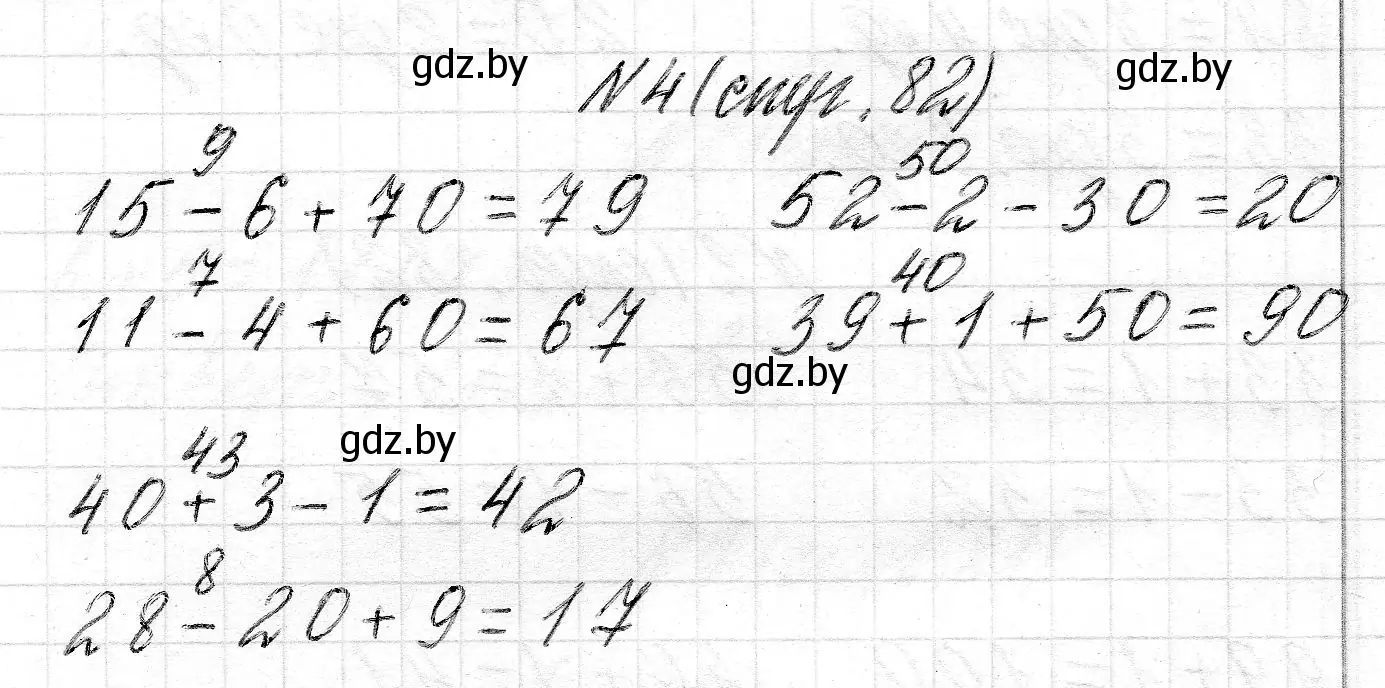 gdz.by
№4 (стр. 82)
gdz.by
9
50
15 - 6 + 70 = 79
52 - 2 - 30 = 20
7
40
11 - 4 + 60 = 67
39 + 1 + 50 = 90
gdz.by
gdz.by
43
40 + 3 - 1 = 42
8
28 - 20 + 9 = 17